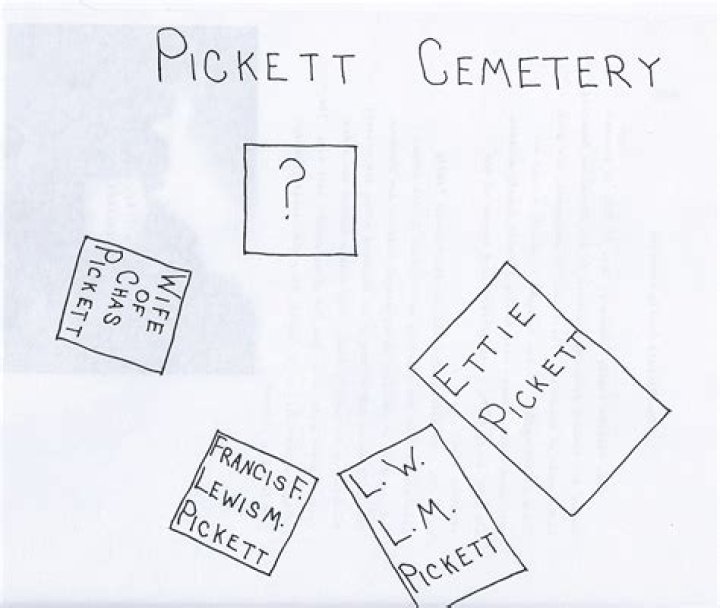 PICKETT CEMETERY
?
WIFE
OF
CHAS
PICKETT
ETTIE
PICKETT
FRANCIS F.
LEWIS M.
PICKETT
L. W.
L. M.
PICKETT